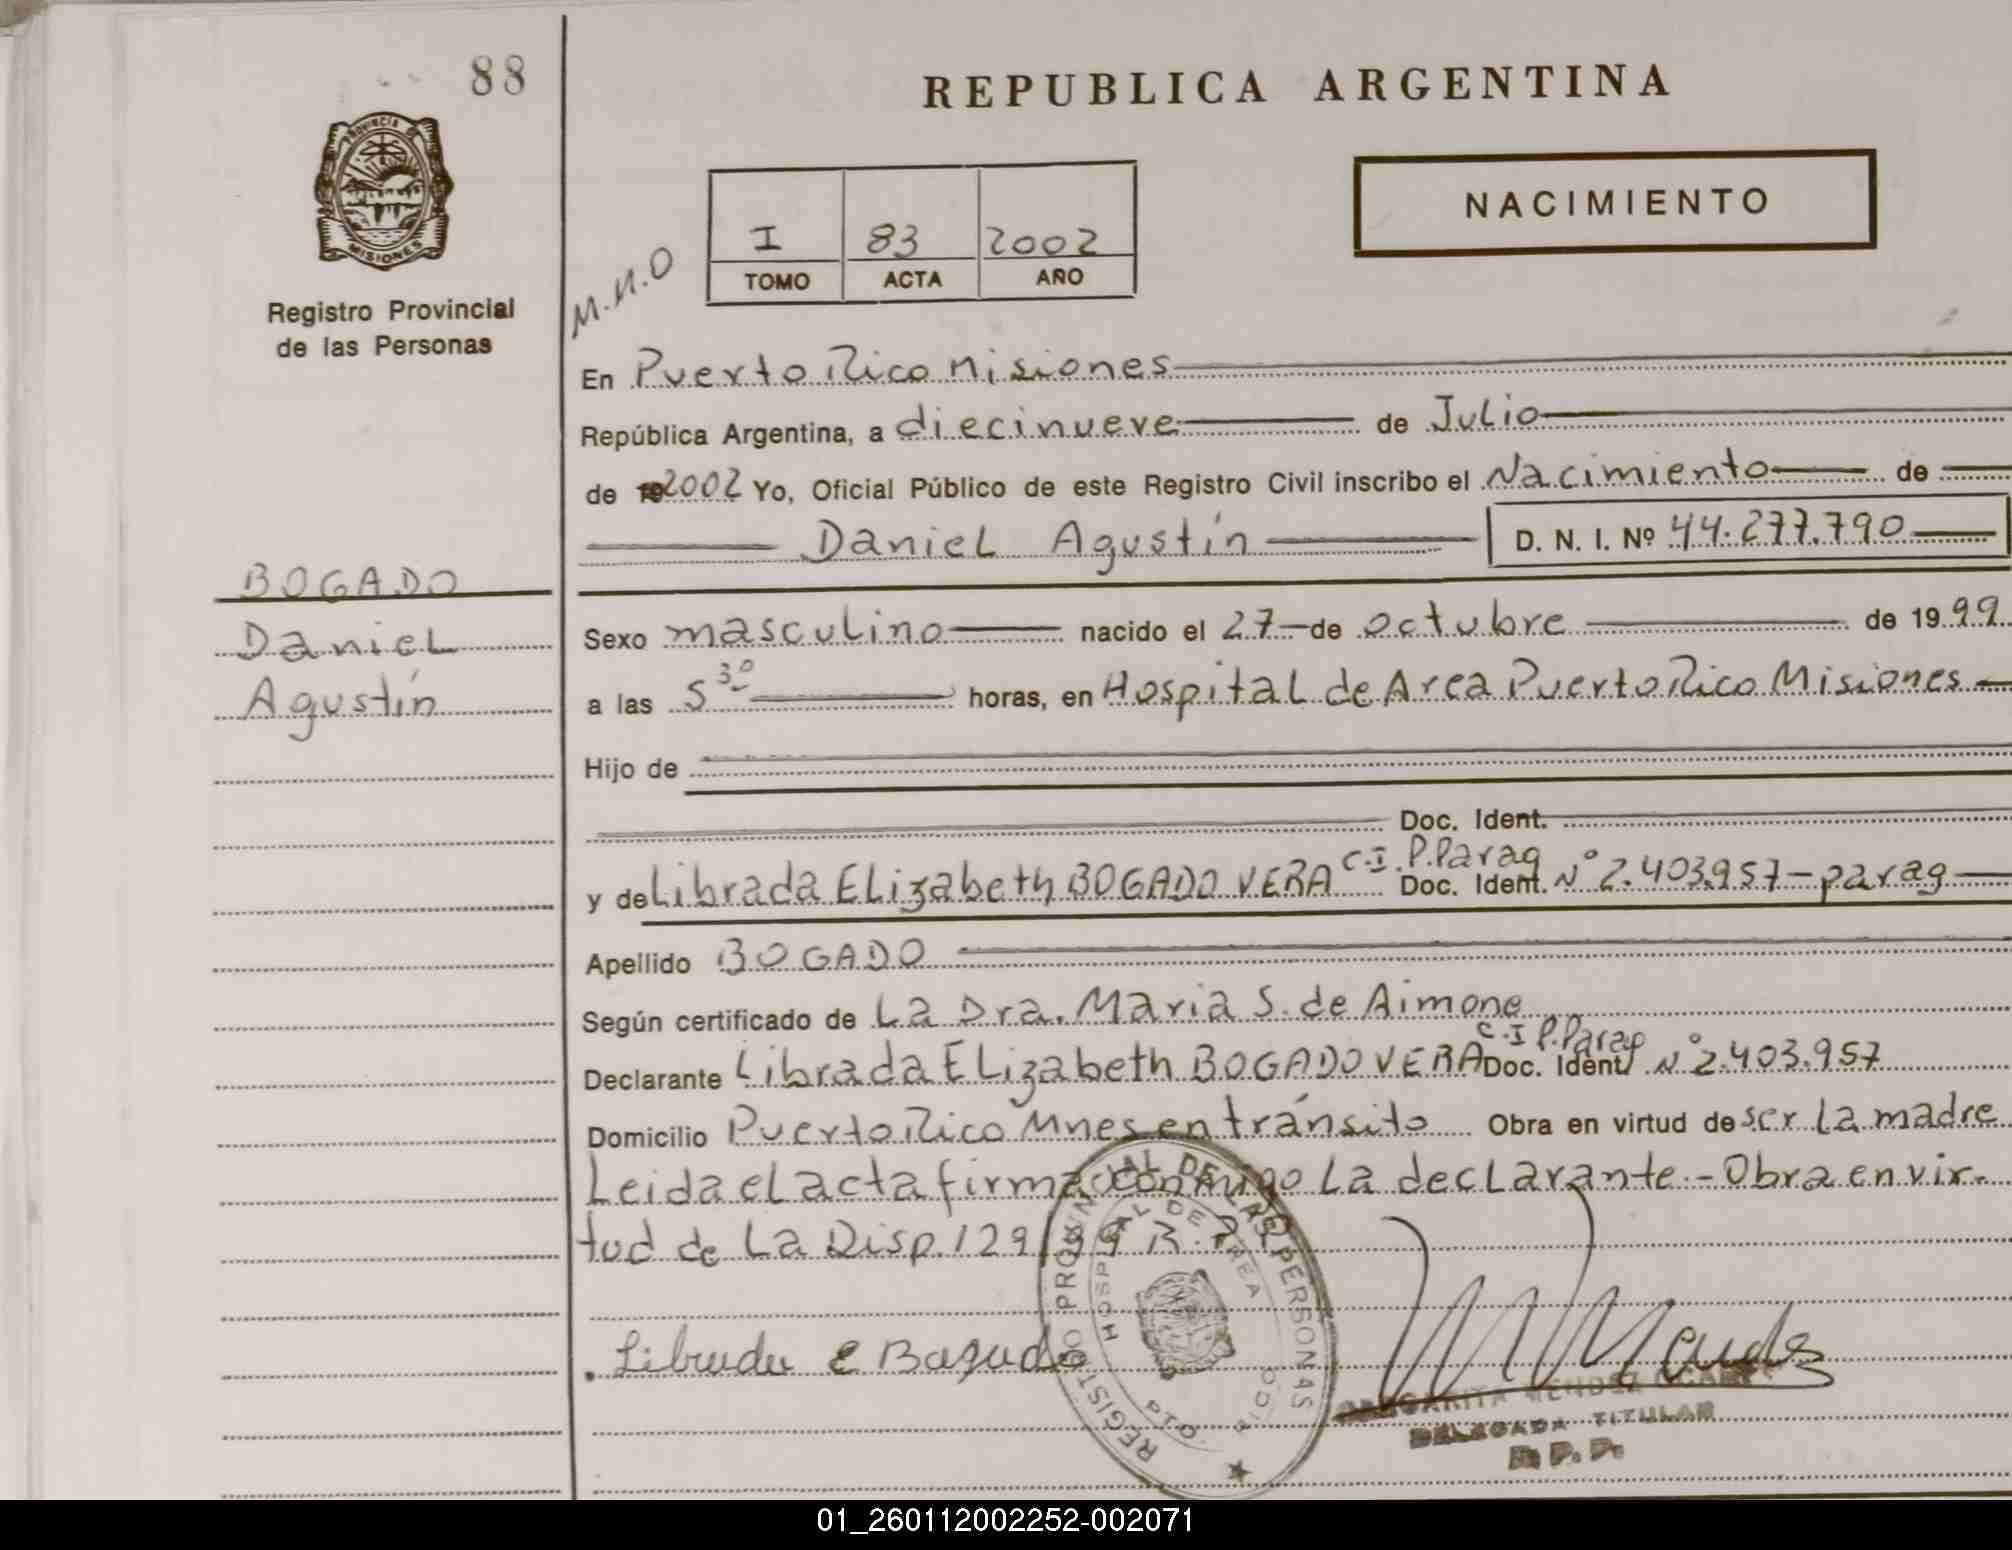 88
REPUBLICA ARGENTINA
PROVINCIA DE
MISIONES
NACIMIENTO
I 83 2002
TOMO ACTA AÑO
M.N.O
Registro Provincial
de las Personas
En Puerto Rico Misiones
República Argentina, a diecinueve de Julio
de 192002 Yo, Oficial Público de este Registro Civil inscribo el Nacimiento de
Daniel Agustín D. N. I. Nº 44.277.790
BOGADO
Daniel
Agustín
Sexo masculino nacido el 27 de octubre de 1999
a las 5 30 horas, en Hospital de Area Puerto Rico Misiones
Hijo de
Doc. Ident.
C.I. P.Parag
y de Librada Elizabeth BOGADO VERA Doc. Ident. Nº 2.403.957 - parag
Apellido BOGADO
Según certificado de La Dra. Maria S. de Aimone
C.I P.Parag
Declarante Librada Elizabeth BOGADO VERA Doc. Ident Nº 2.403.957
Domicilio Puerto Rico Mnes en tránsito Obra en virtud de ser la madre
Leida el acta firma conmigo La declarante - Obra en vir-
tud de La Disp. 129/99 R.P.P.
REGISTRO PROVINCIAL DE LAS PERSONAS
HOSPITAL DE AREA
PTO. RICO
Librada E Bogado
MARGARITA MENDEZ
DELEGADA TITULAR
R. P. P.
01_260112002252-002071